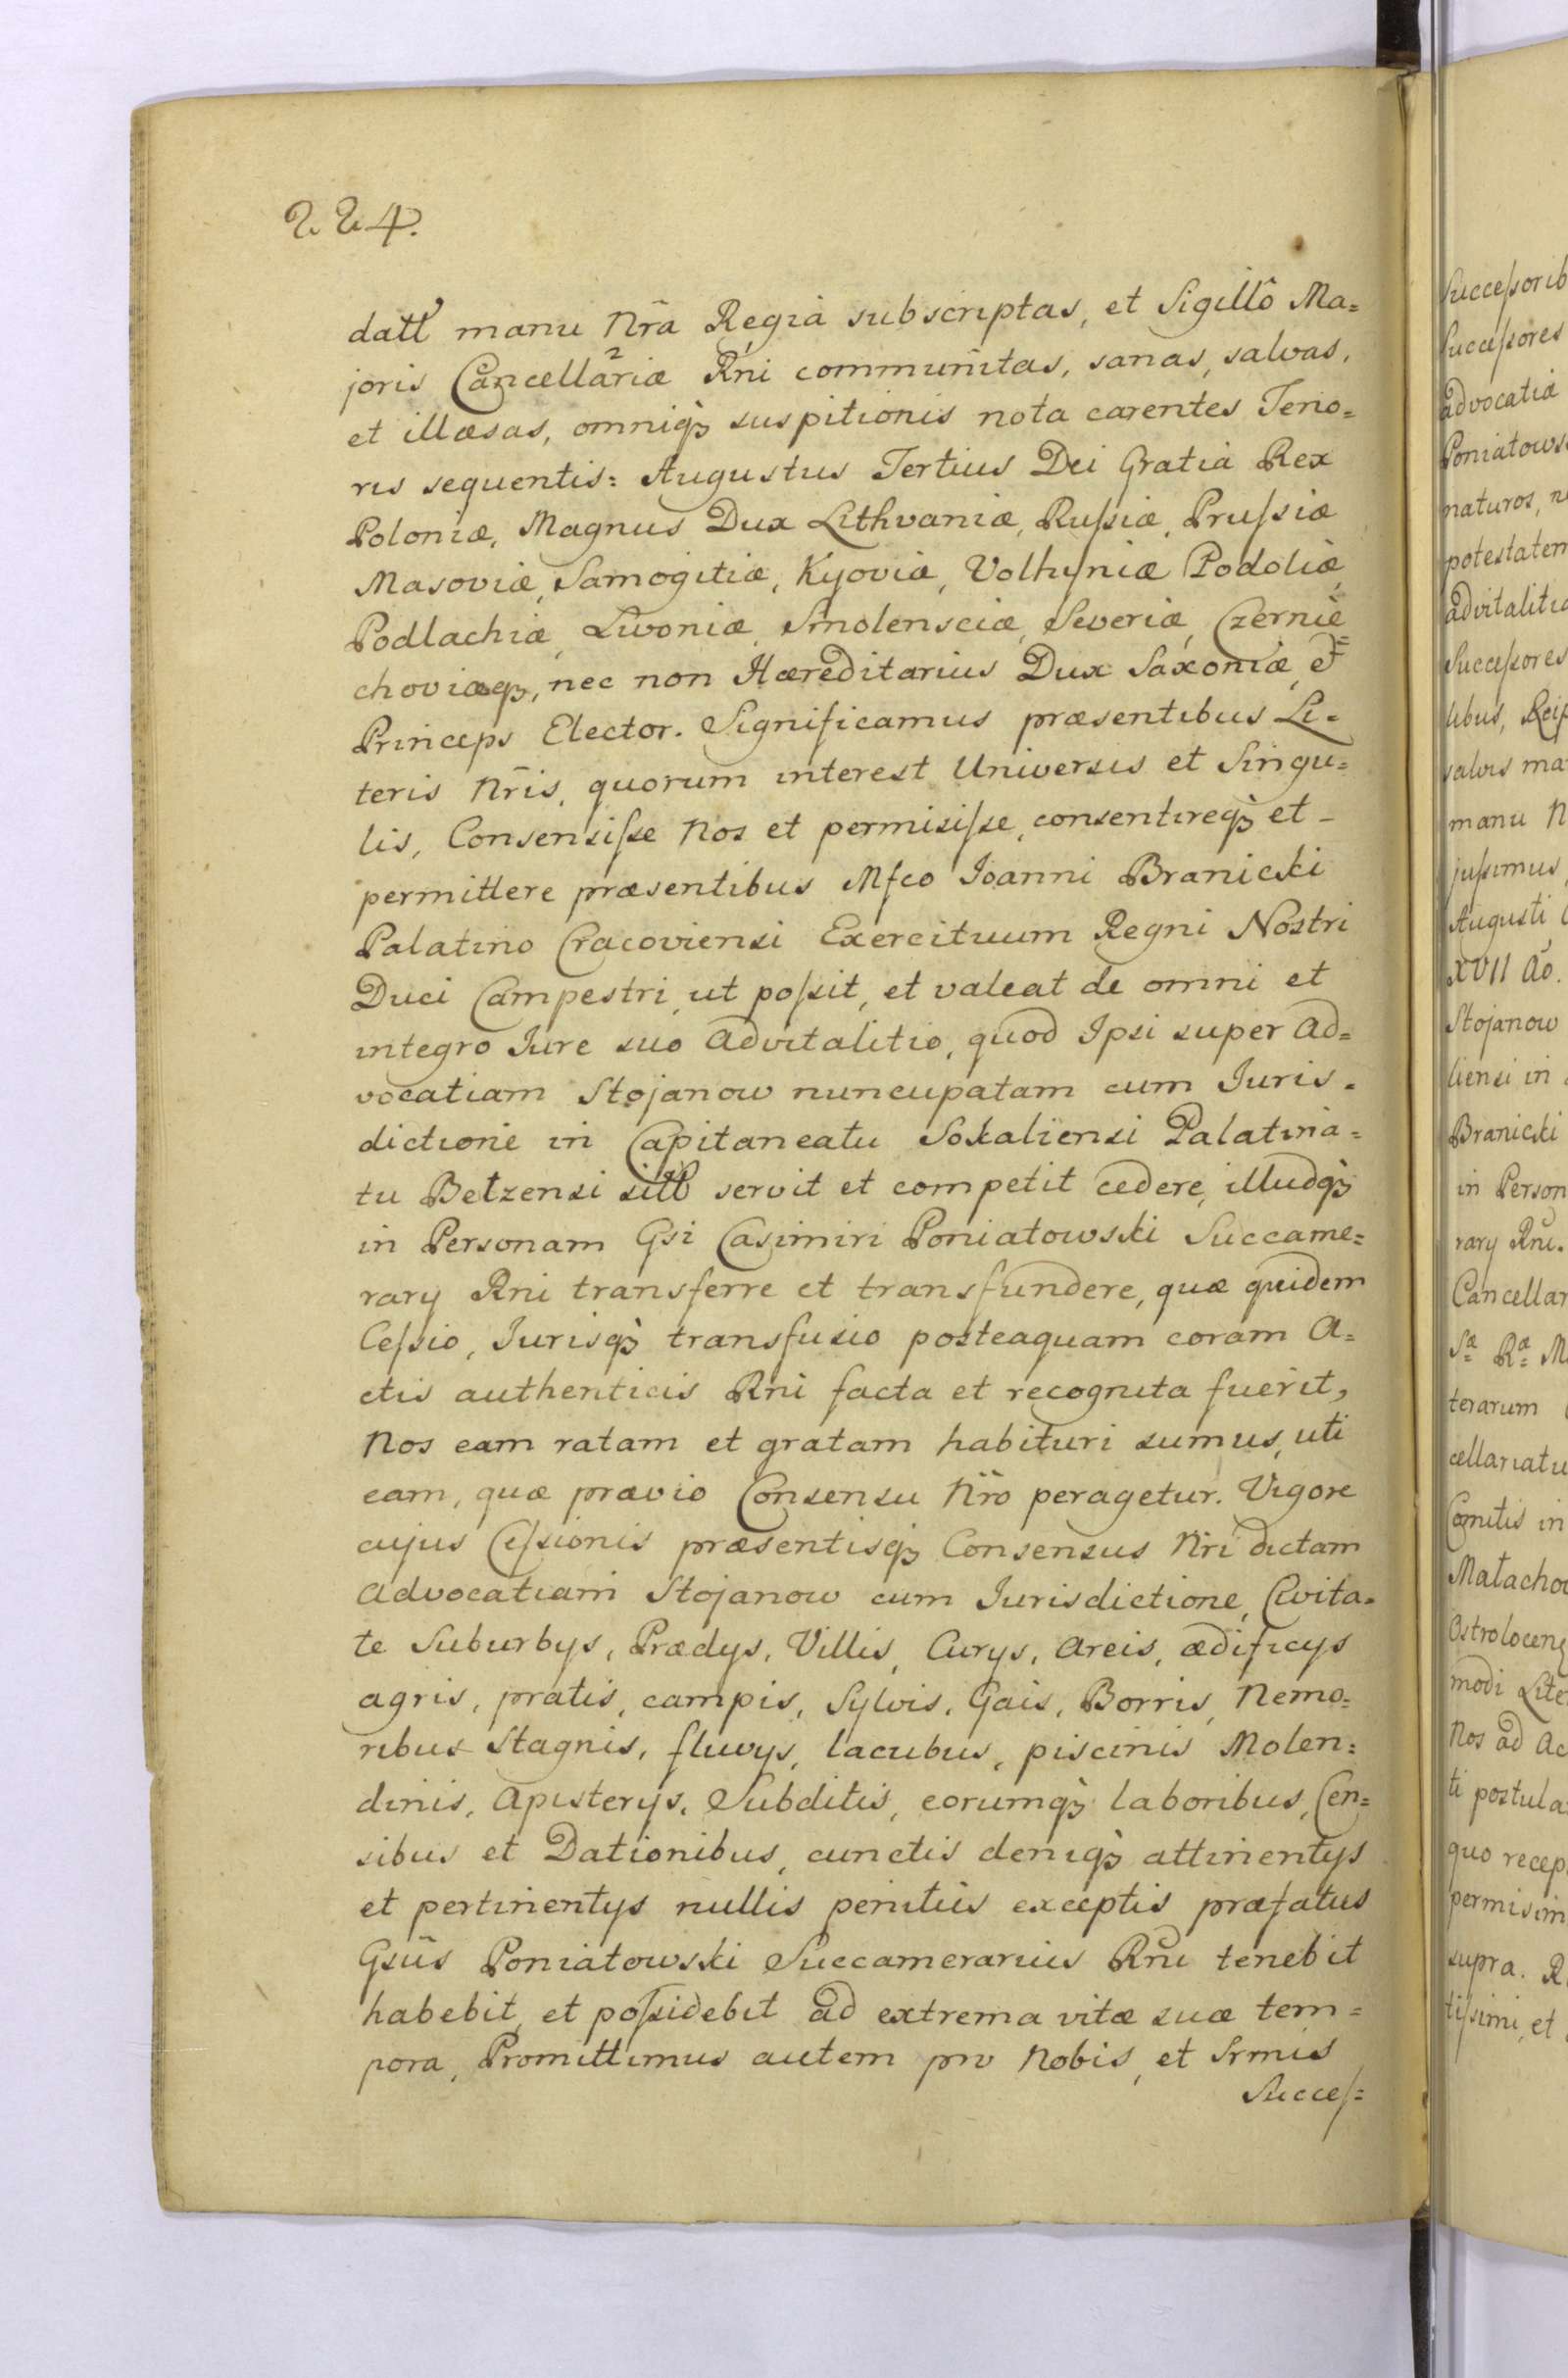 224.
datt manu Nrã Regiâ subscriptas, et Sigillô Ma=
joris Cancellariæ Rni communitas, sanas, salvas,
et illæsas, omniq₃ suspitionis nota carentes Teno=
ris sequentis: Augustus Tertius Dei Gratiâ Rex
Poloniæ, Magnus Dux Lithvaniæ, Ruſsiæ, Pruſsiæ
Masoviæ, Samogitiæ, Kyoviæ, Volhyniæ Podoliæ,
Podlachiæ, Livoniæ, Smolensciæ, Severiæ, Czernie=
choviæq₃, nec non Hæreditarius Dux Saxoniæ, et
Princeps Elector. Significamus præsentibus Li=
teris Nr̃is, quorum interest Universis et Singu=
lis, Consensiſse Nos et permisiſse, consentireq₃ et -
permittere præsentibus Mfco Joanni Branicki
Palatino Cracoviensi Exercituum Regni Nostri
Duci Campestri, ut poſsit, et valeat de omni et
integro Jure suo advitalitio, quod Ipsi super Ad=
vocatiam Stojanow nuncupatam cum Juris=
dictione in Capitaneatu Sokaliensi Palatina=
tu Betzensi sitt servit et competit cedere, illudq₃
in Personam Gsi Casimiri Poniatowski Succame=
rarÿ Rni transferre et transfundere, quæ quidem
Ceſsio, Jurisq₃ transfusio posteaquam coram A=
ctis authenticis Rni facta et recognita fuerit,
Nos eam ratam et gratam habituri sumus, uti
eam, quæ prævio Consensu Nr̃o peragetur. Vigore
cujus Ceſsionis præsentisq₃ Consensus Nr̃i dictam
advocatiam Stojanow cum Jurisdictione, Civita=
te Suburbÿs, Prædÿs, Villis, Curÿs, areis, ædificÿs
agris, pratis, campis, Sylvis, Gais, Borris, Nemo=
ribus Stagnis, fluvÿs, lacubus, piscinis Molen=
dinis, Apisterÿs, Subditis, eorumq₃ laboribus, Cen=
sibus et Dationibus, cunctis deniq₃ attinentÿs
et pertinentÿs nullis penitus exceptis præfatus
Gsus Poniatowski Succamerarius Rni tenebit
habebit, et poſsidebit ad extrema vitæ suæ tem=
pora, Promittimus autem pro Nobis, et Srmis
Succeſ=
Succeſsorib
Succeſsores
advocatiâ
Poniatows
naturos, n
potestatem
advitalitia
Succeſsores
libus, Reip
salvis ma
manu N
juſsimus
Augusti
XVII Aõ.
Stojanow
liensi in
Branicki
in Person
rarÿ Rni.
Cancellar
Sæ Ræ M
terarum
cellariatu
Comitis in
Małachow
Ostrolocen
modi Lite
Nos ad Ac
ti postula
quo recep
permisim
supra. R
tiſsimi, et